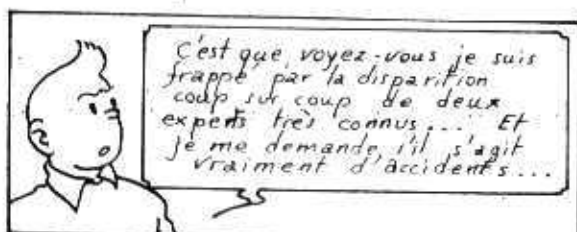 C'est que, voyez-vous je suis
frappé par la disparition
coup sur coup de deux
experts très connus... Et
je me demande s'il s'agit
vraiment d'accidents...